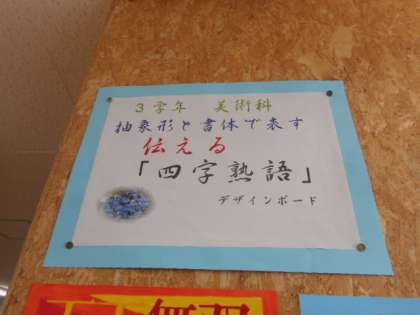 3学年 美術科
抽象形と書体で表す
伝える
「四字熟語」
デザインボード